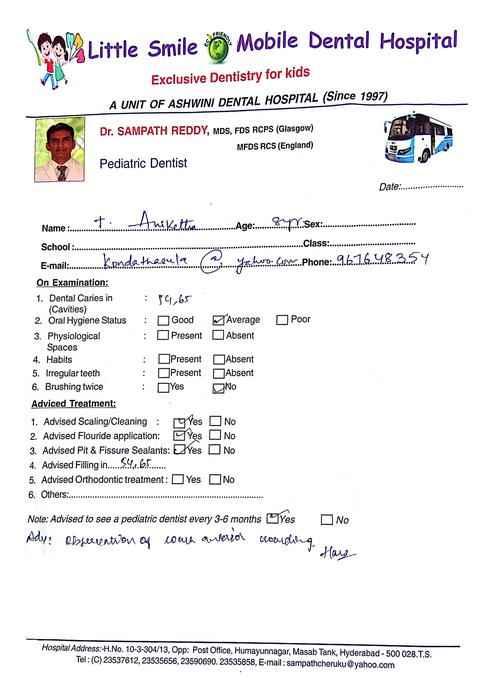 Little Smile ECO FRIENDLY Mobile Dental Hospital
Exclusive Dentistry for kids
A UNIT OF ASHWINI DENTAL HOSPITAL (Since 1997)
Dr. SAMPATH REDDY, MDS, FDS RCPS (Glasgow)
MFDS RCS (England)
Pediatric Dentist
Date:
Name: T. Age: 8yr Sex:
School: Class:
E-mail: @ yahoo.com Phone: 967648354
On Examination:
1. Dental Caries in : 54,65
(Cavities)
2. Oral Hygiene Status : Good Average Poor
3. Physiological : Present Absent
Spaces
4. Habits : Present Absent
5. Irregular teeth : Present Absent
6. Brushing twice : Yes No
Adviced Treatment:
1. Advised Scaling/Cleaning : Yes No
2. Advised Flouride application: Yes No
3. Advised Pit & Fissure Sealants: Yes No
4. Advised Filling in 54,65
5. Advised Orthodontic treatment: Yes No
6. Others:
Note: Advised to see a pediatric dentist every 3-6 months Yes No
Adv: Observation of lower anterior crowding
Hospital Address:-H.No. 10-3-304/13, Opp: Post Office, Humayunnagar, Masab Tank, Hyderabad - 500 028.T.S.
Tel : (C) 23537612, 23535656, 23590690. 23535858, E-mail : sampathcheruku@yahoo.com